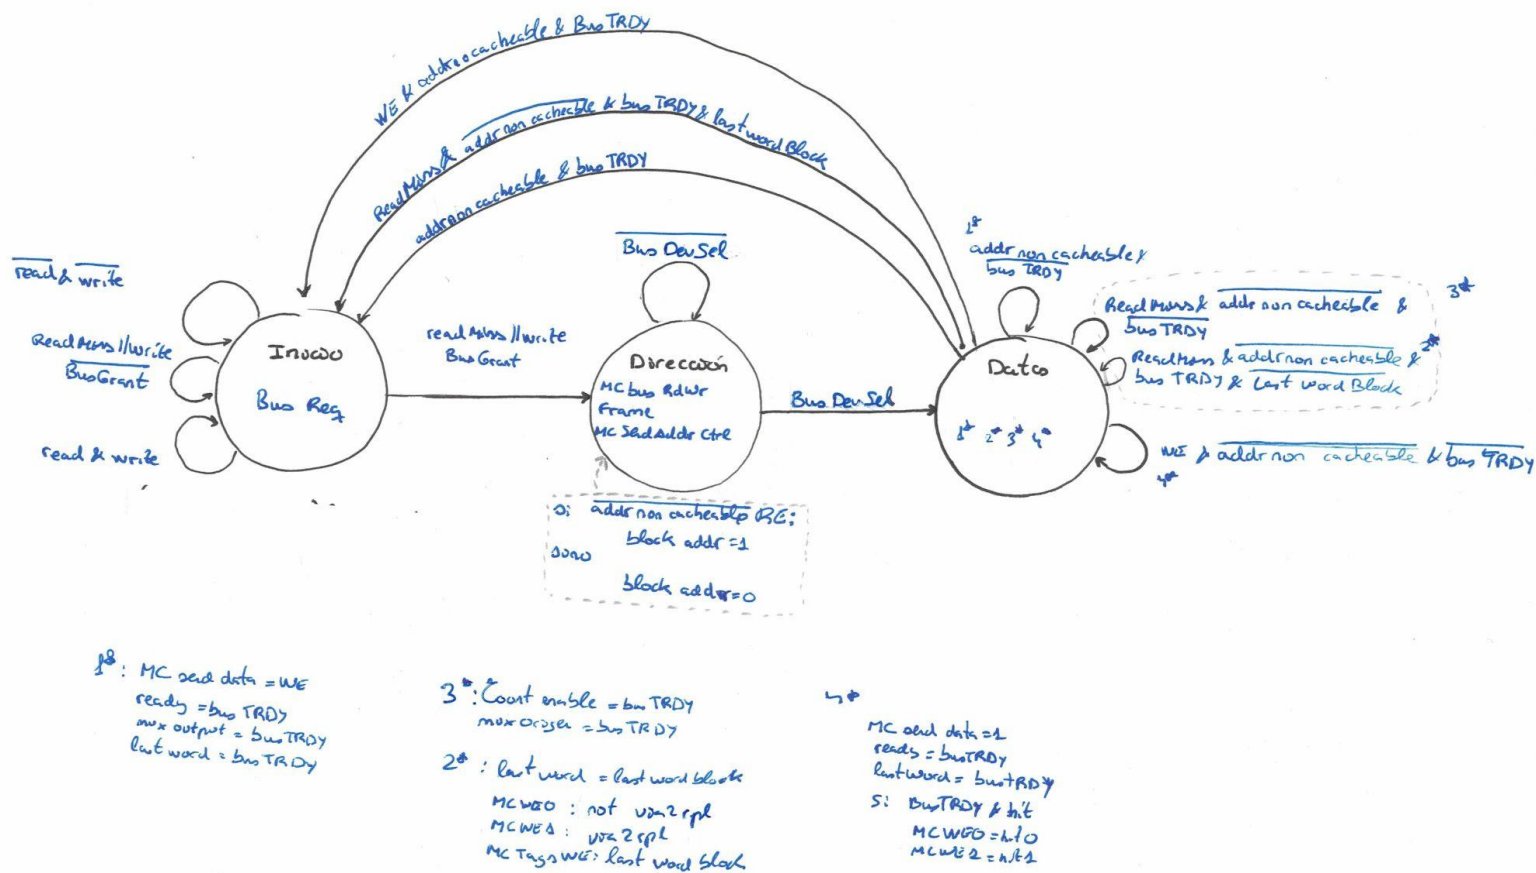 WE & addr nocacheable & Bus TRDY
Read Miss & addr non cacheable & bus TRDY & last word Block
addr non cacheable & bus TRDY
read & write
Read Miss || write
Bus Grant
read & write
Inicio
Bus Req
read Miss || write
Bus Grant
Bus Dev Sel
Dirección
MC bus RdWr
Frame
MC Send Addr Ctrl
Bus Dev Sel
si addr non cacheable & RE:
block addr = 1
sino
block addr = 0
1*
addr non cacheable &
bus TRDY
Read Miss & addr non cacheable &
bus TRDY
3*
Read Miss & addr non cacheable &
bus TRDY & Last word Block
2*
Datos
1* 2* 3* 4*
WE & addr non cacheable & bus TRDY
4*
1*: MC send data = WE
ready = bus TRDY
mux output = bus TRDY
last word = bus TRDY
3*: Count enable = bus TRDY
mux origen = bus TRDY
2*: last word = last word block
MCWE0 : not via 2 rpl
MCWE1 : via 2 rpl
MC Tags WE: last word block
4*
MC send data = 1
ready = bus TRDY
last word = bus TRDY
Si Bus TRDY & hit
MCWE0 = hit 0
MCWE2 = hit 1